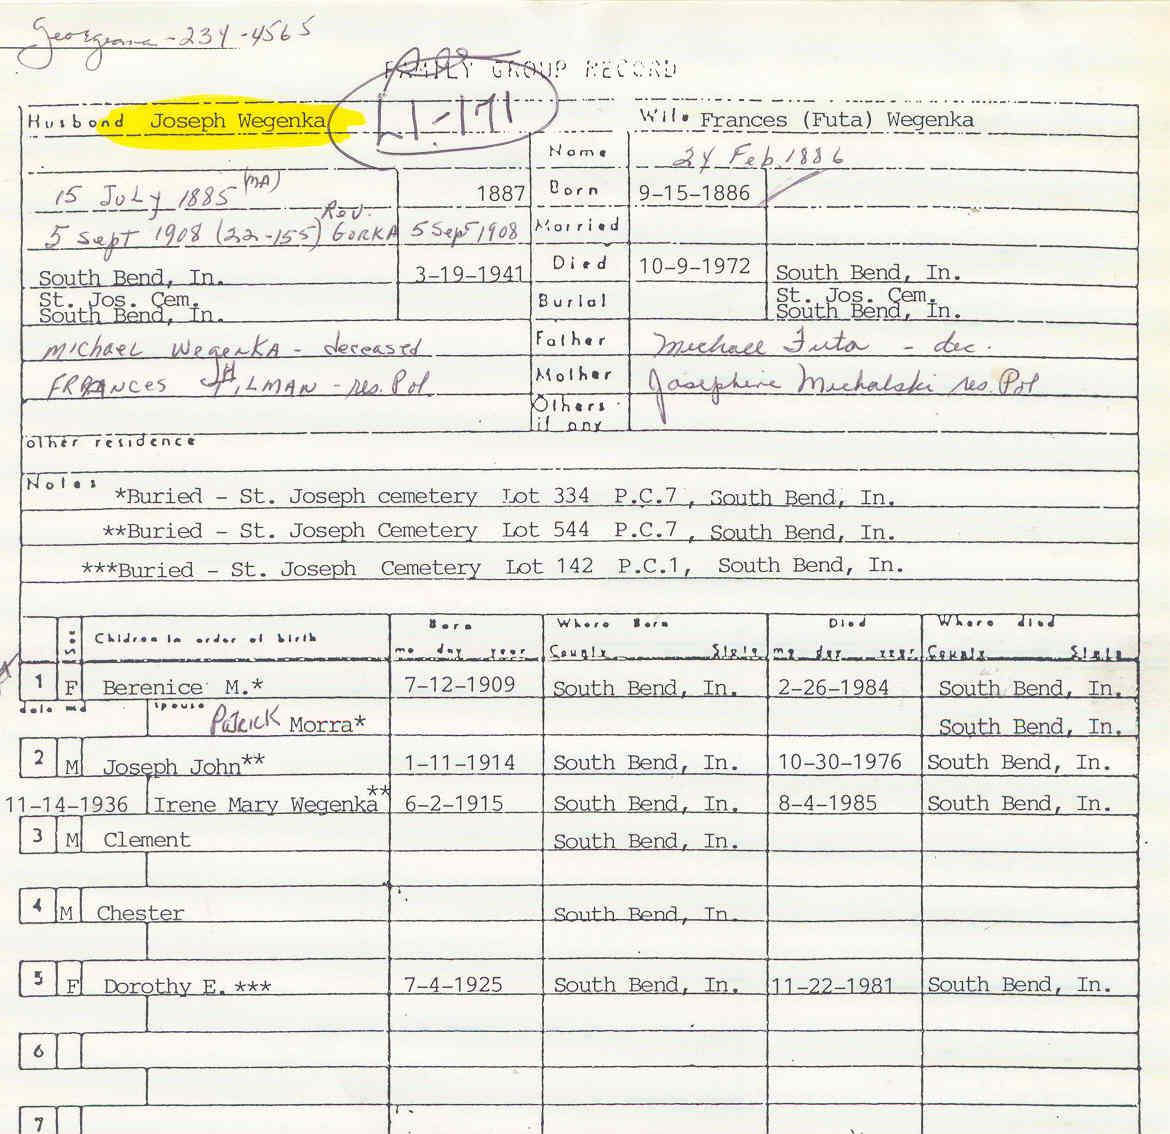 Georgeana - 234-4565
FAMILY GROUP RECORD
L1-171
Husband Joseph Wegenka
Wife Frances (Futa) Wegenka
Name 24 Feb. 1886
15 July 1885 (MA) 1887 Born 9-15-1886
Rev.
5 Sept 1908 (22-155) GORKA 5 Sept 1908 Married
South Bend, In. 3-19-1941 Died 10-9-1972 South Bend, In.
St. Jos. Cem. Burial St. Jos. Cem.
South Bend, In. South Bend, In.
Michael Wegenka - deceased Father Michael Futa - dec.
FRANCES - res. Pol Mother Josephine Michalski res. Pol
Others
if any
other residence
Notes *Buried - St. Joseph cemetery Lot 334 P.C.7, South Bend, In.
**Buried - St. Joseph Cemetery Lot 544 P.C.7, South Bend, In.
***Buried - St. Joseph Cemetery Lot 142 P.C.1, South Bend, In.
Sex Children in order of birth Born Where Born Died Where died
mo day year County State mo day year County State
1 F Berenice M.* 7-12-1909 South Bend, In. 2-26-1984 South Bend, In.
date md spouse Patrick Morra* South Bend, In.
2 M Joseph John** 1-11-1914 South Bend, In. 10-30-1976 South Bend, In.
11-14-1936 Irene Mary Wegenka** 6-2-1915 South Bend, In. 8-4-1985 South Bend, In.
3 M Clement South Bend, In.
4 M Chester South Bend, In.
5 F Dorothy E. *** 7-4-1925 South Bend, In. 11-22-1981 South Bend, In.
6
7